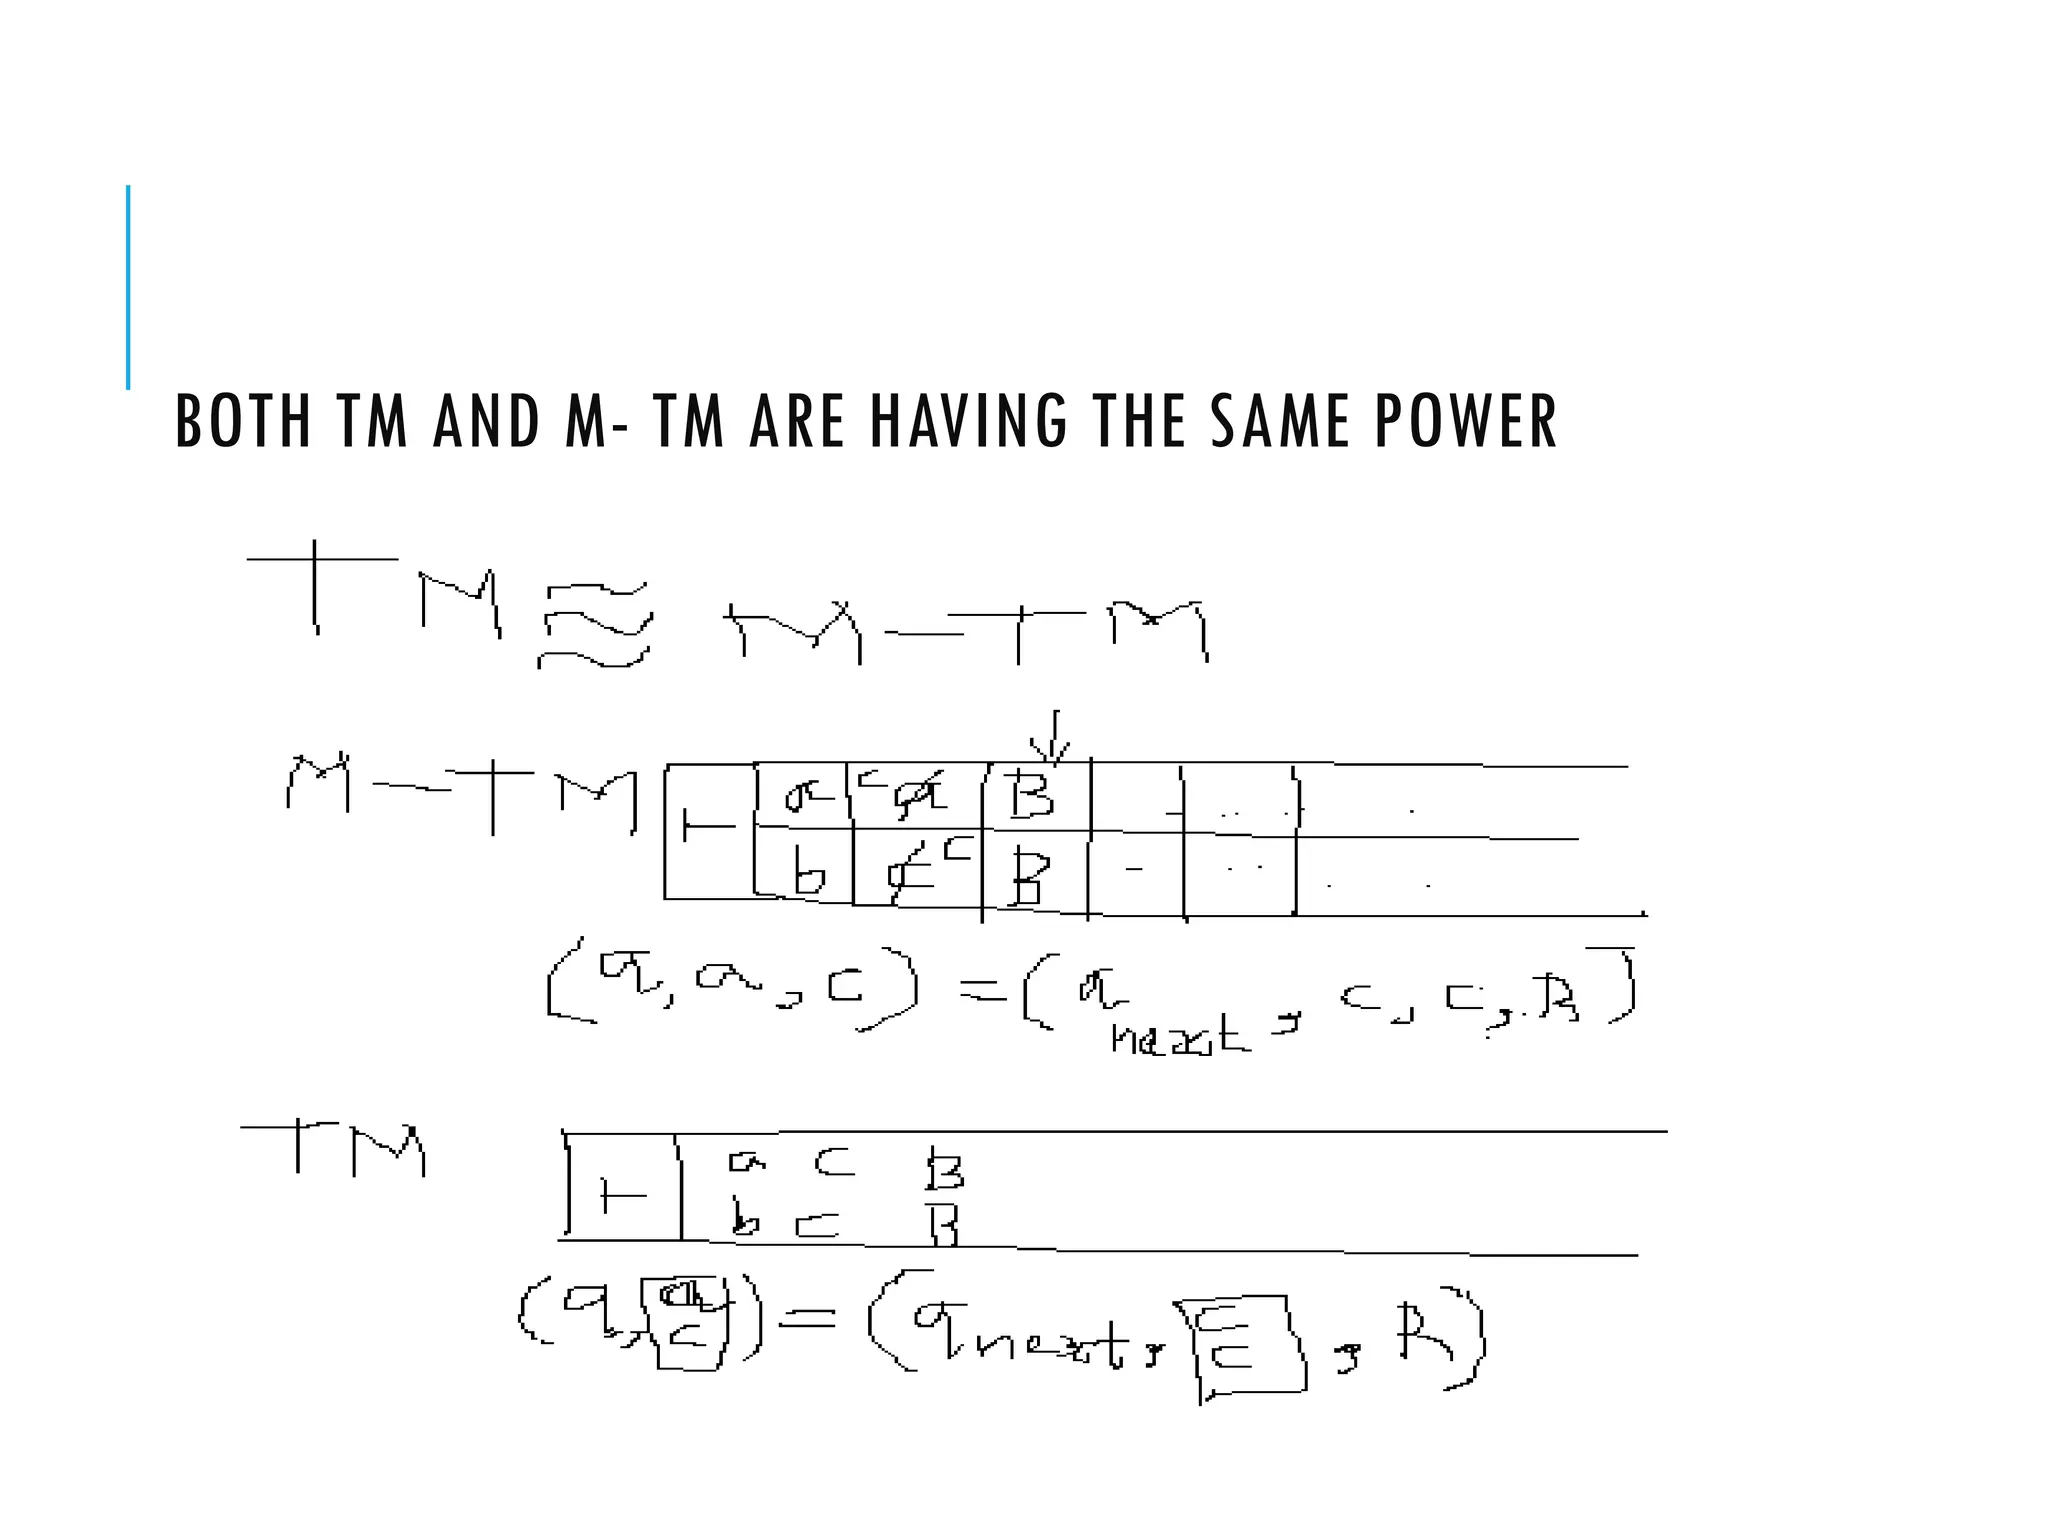 BOTH TM AND M- TM ARE HAVING THE SAME POWER
TM ≋ M-TM
M-TM ⊢ a c a B
b c c B
(q, a, c) = (q next, c, c, R)
TM ⊢ a c B
b c B
(q, a c) = (q next, c c, R)